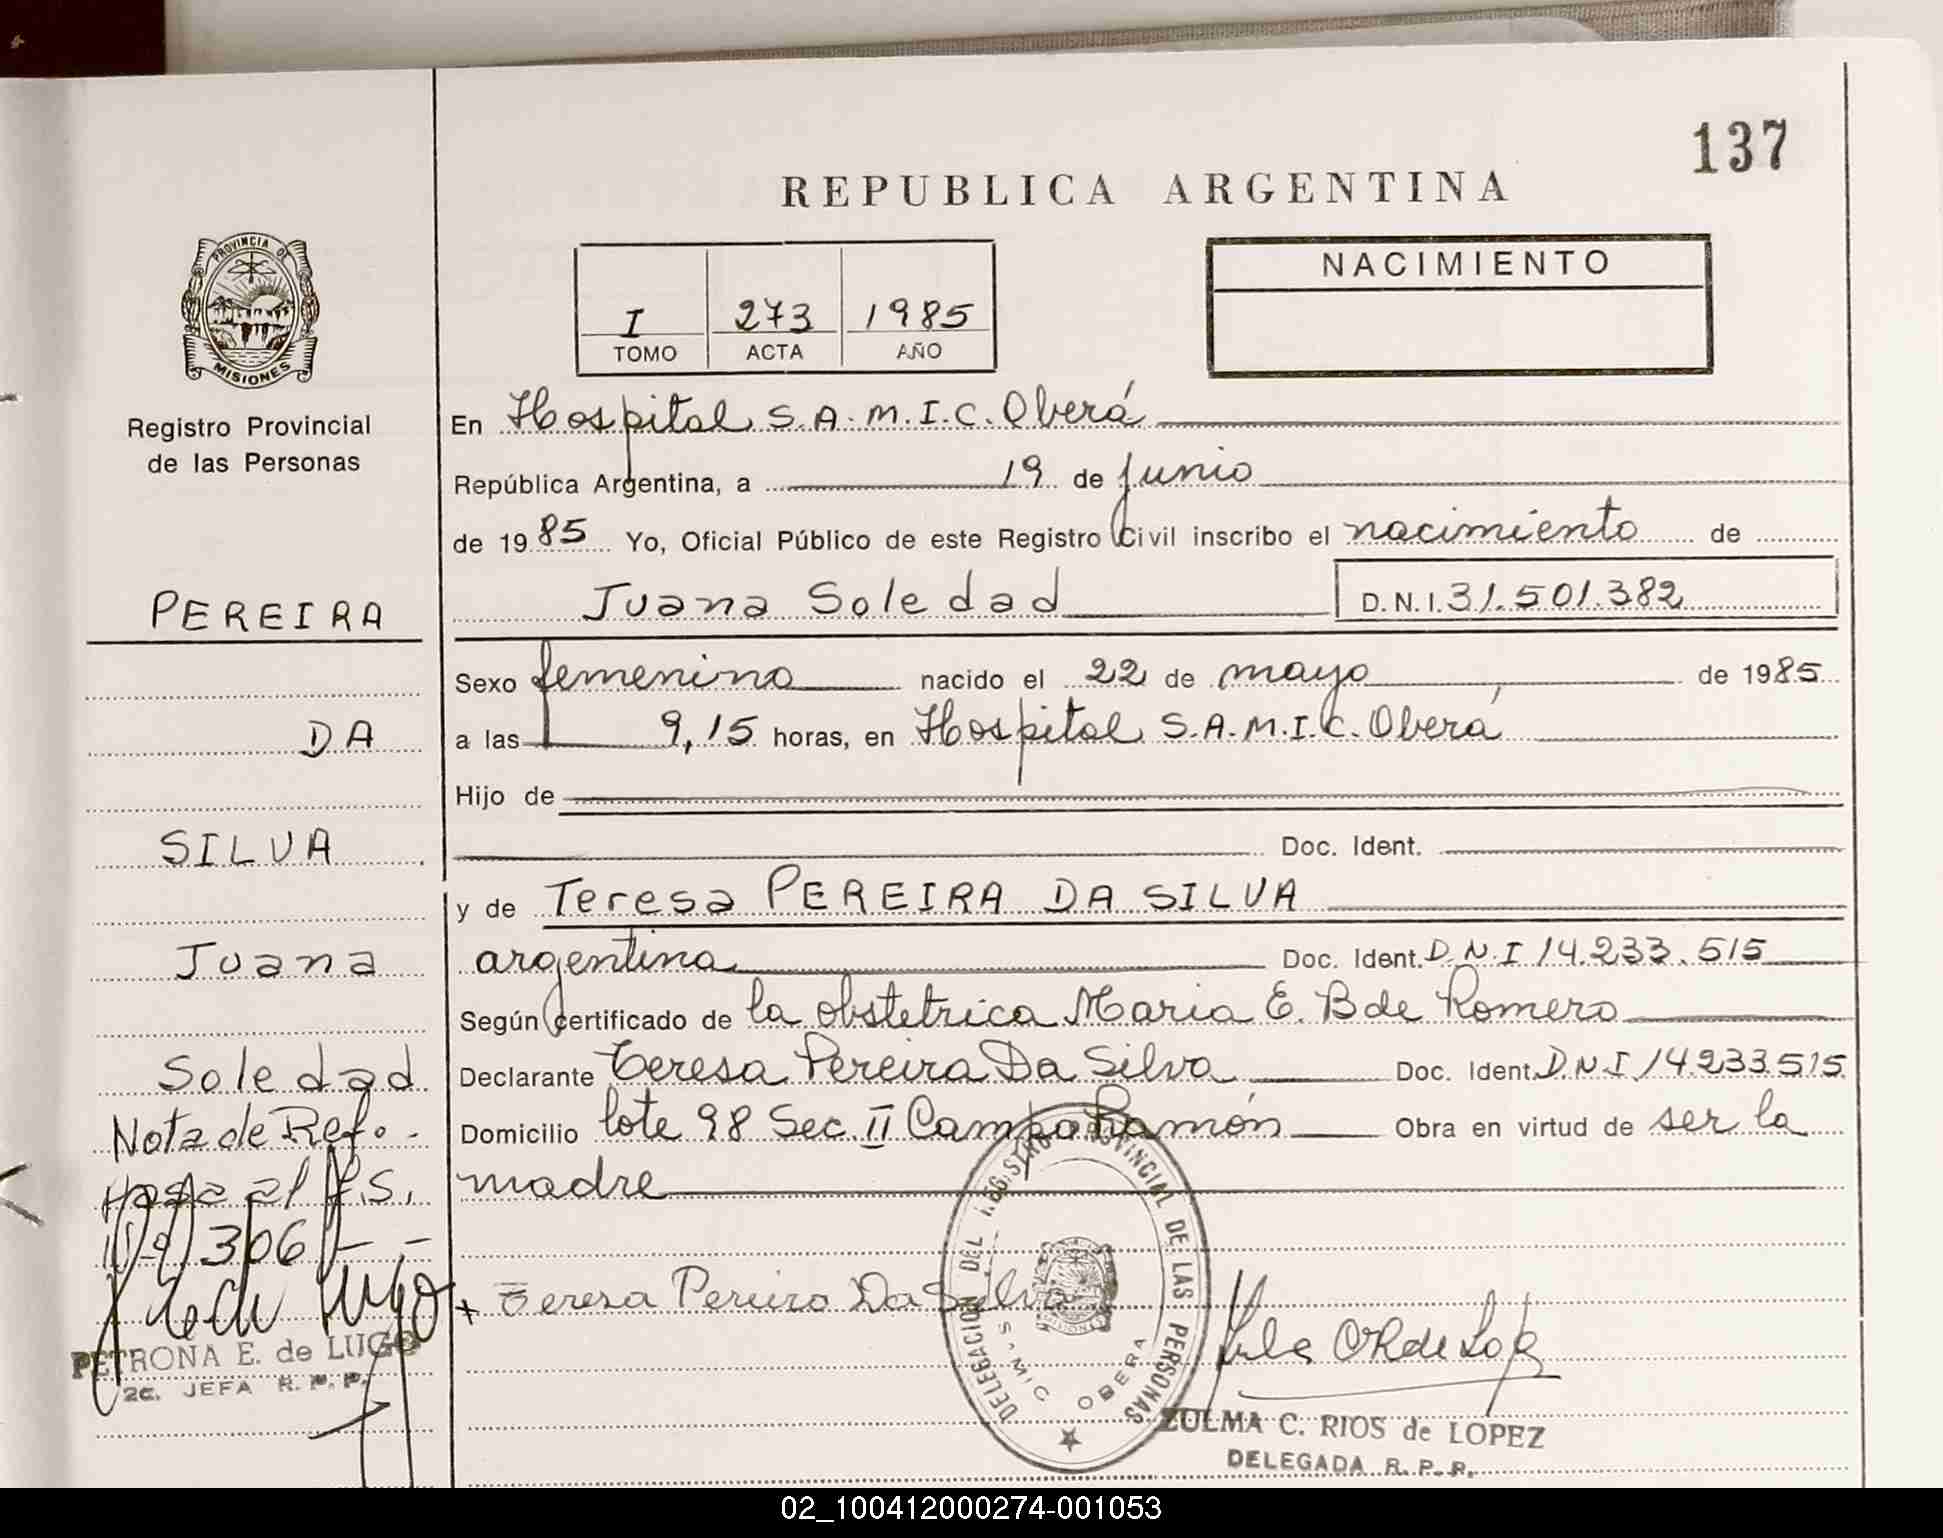 137
REPUBLICA ARGENTINA
PROVINCIA DE
MISIONES
Registro Provincial
de las Personas
I 273 1985
TOMO ACTA AÑO
NACIMIENTO
En Hospital S.A.M.I.C. Oberá
República Argentina, a 19 de junio
de 1985 Yo, Oficial Público de este Registro Civil inscribo el nacimiento de
Juana Soledad D.N.I. 31.501.382
PEREIRA
DA
SILVA
Juana
Soledad
Nota de Ref.
Hoja al f.s.
306
PETRONA E. de LUGO
2c. JEFA R. P. P.
Sexo femenino nacido el 22 de mayo de 1985
a las 9,15 horas, en Hospital S.A.M.I.C. Oberá
Hijo de
Doc. Ident.
y de Teresa PEREIRA DA SILVA
argentina Doc. Ident. D.N.I 14.233.515
Según certificado de la obstetrica Maria E. B de Romero
Declarante Teresa Pereira Da Silva Doc. Ident. D.N.I. 14.233.515
Domicilio lote 98 Sec. II Campo Ramón Obra en virtud de ser la
madre
Teresa Pereira Da Silva
DELEGACION DEL REGISTRO PROVINCIAL DE LAS PERSONAS
S.A.MIC OBERA
ZULMA C. RIOS de LOPEZ
DELEGADA R. P. P.
02_100412000274-001053